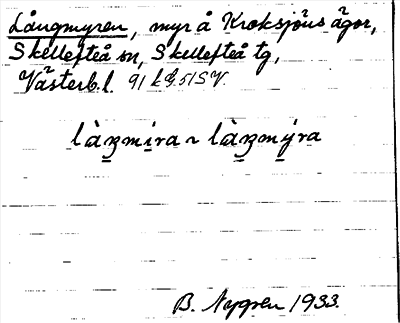 Långmyren, myr å Kroksjöns ägor,
Skellefteå sn, Skellefteå tg,
Västerb. l.
làŋmira ~ làŋmýra
B. Nygren 1933.